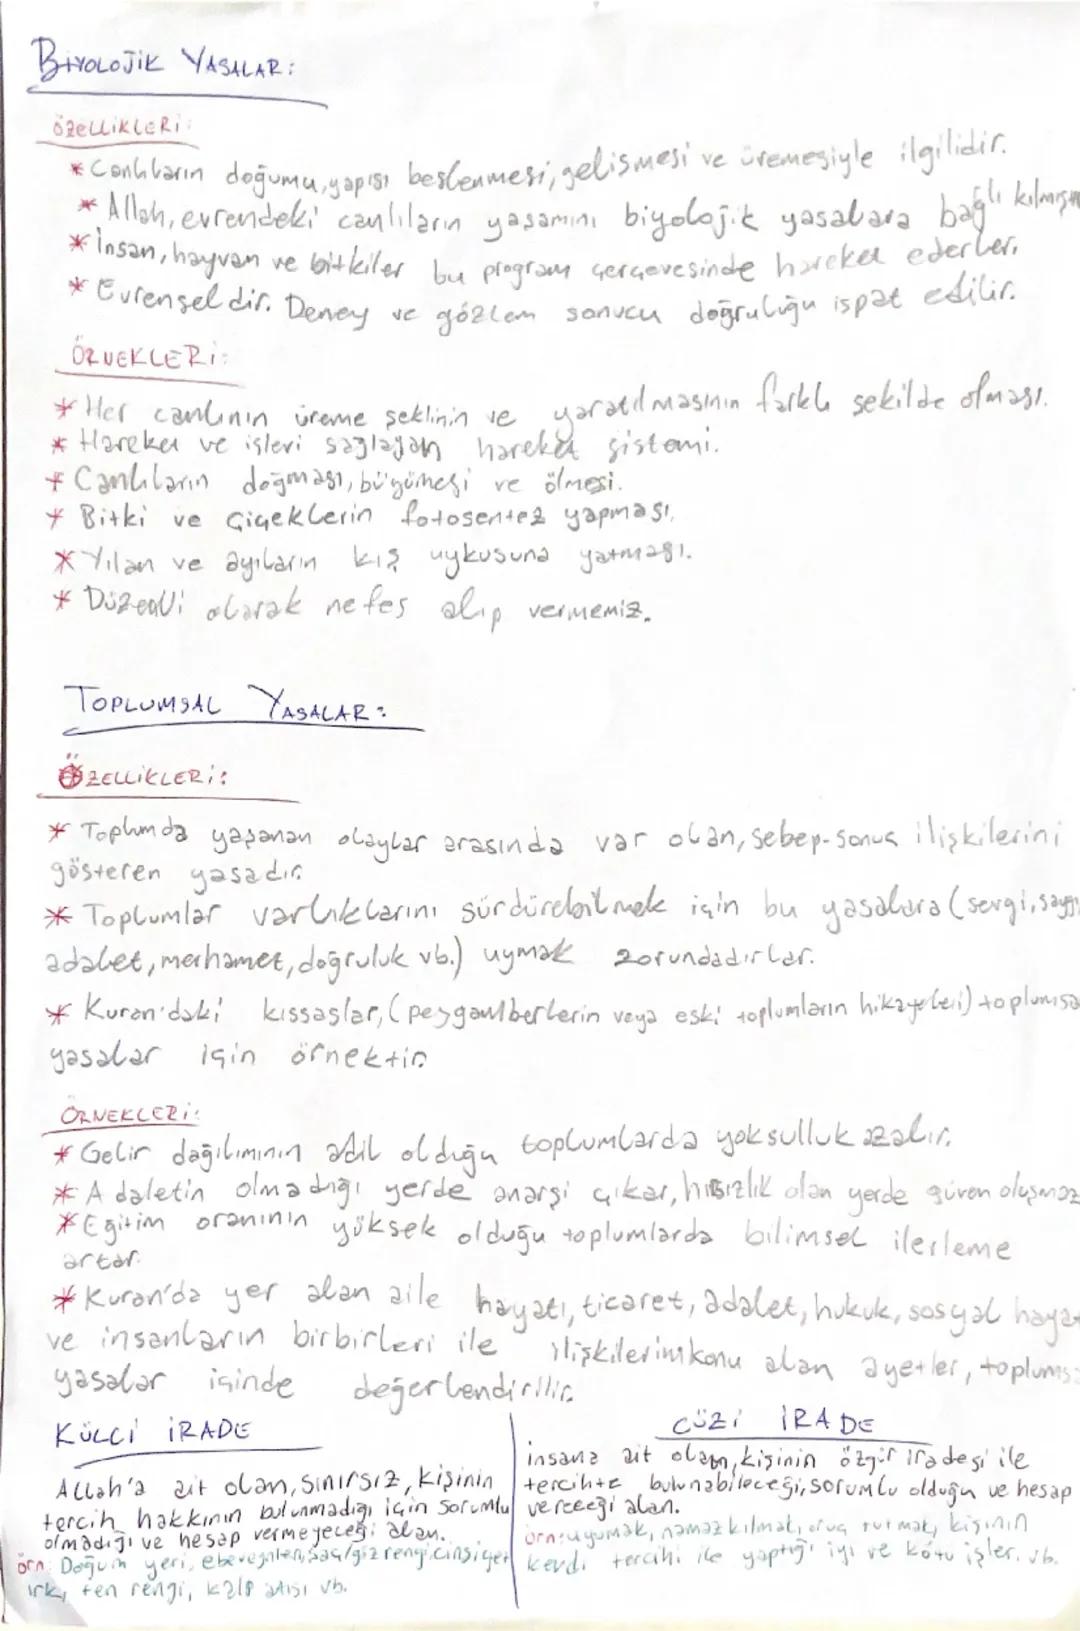 BİYOLOJİK YASALAR:
ÖZELLİKLERİ:
* Canlıların doğumu, yapısı beslenmesi, gelişmesi ve üremesiyle ilgilidir.
* Allah, evrendeki canlıların yaşamını biyolojik yasalara bağlı kılmıştı
* İnsan, hayvan ve bitkiler bu program çerçevesinde hareket ederler.
* Evrenseldir. Deney ve gözlem sonucu doğruluğu ispat edilir.
ÖRNEKLERİ:
* Her canlının üreme şeklinin ve yaratılmasının farklı şekilde olması.
* Hareket ve işlevi sağlayan hareket sistemi.
* Canlıların doğması, büyümesi ve ölmesi.
* Bitki ve Çiçeklerin fotosentez yapması,
* Yılan ve ayıların kış uykusuna yatması.
* Düzenli olarak nefes alıp vermemiz.
TOPLUMSAL YASALAR:
ÖZELLİKLERİ:
* Toplumda yaşanan olaylar arasında var olan, sebep-sonuç ilişkilerini
gösteren yasadır.
* Toplumlar varlıklarını sürdürebilmek için bu yasalara (sevgi, saygı,
adalet, merhamet, doğruluk vb.) uymak zorundadırlar.
* Kuran'daki kıssaslar, (peygamberlerin veya eski toplumların hikayeleri) toplumsa
yasalar için örnektir.
ÖRNEKLERİ:
* Gelir dağılımının adil olduğu toplumlarda yoksulluk azalır.
* Adaletin olmadığı yerde anarşi çıkar, hırsızlık olan yerde güven oluşmaz
* Eğitim oranının yüksek olduğu toplumlarda bilimsel ilerleme
artar.
* Kuran'da yer alan aile hayatı, ticaret, adalet, hukuk, sosyal hayat
ve insanların birbirleri ile ilişkilerini konu alan ayetler, toplumsa
yasalar içinde değerlendirilir.
KÜLLİ İRADE
Allah'a ait olan, sınırsız, kişinin
tercih hakkının bulunmadığı için sorumlu
olmadığı ve hesap vermeyeceği alan.
örn: Doğum yeri, ebeveynleri, saç/göz rengi, cinsiyet
ırk, ten rengi, kalp atışı vb.
CÜZİ İRADE
insana ait olan, kişinin özgür iradesi ile
tercihte bulunabileceği, sorumlu olduğu ve hesap
vereceği alan.
örn: uyumak, namaz kılmak, oruç tutmak, kişinin
kendi tercihi ile yaptığı iyi ve kötü işler. vb.